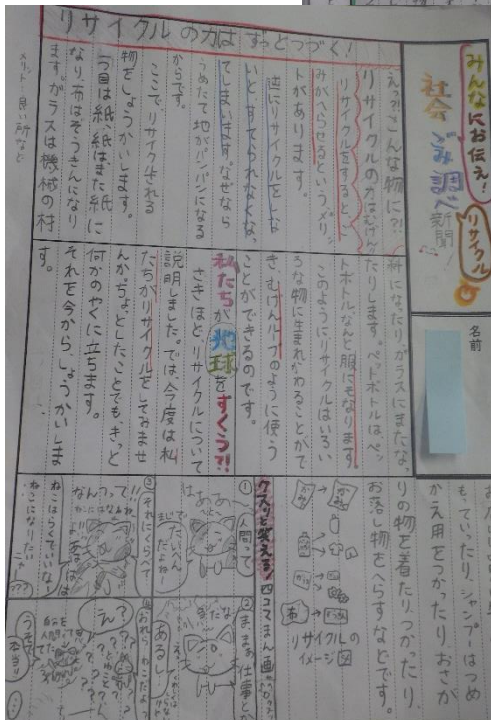 みんなにお伝え!
リサイクル
社会 ごみ調べ新聞!
名前
リサイクルの力はずっとつづく!
えっ?!こんな物に?!
リサイクルの力はむげん
リサイクルをすると、ご
みがへらせるというメリッ
トがあります。
逆にリサイクルをしな
いと、すてられなくなっ
てしまいます。なぜなら
うめたて地がパンパンになる
からです。
ここで、リサイクルされる
物をしょうかいします。
一つ目は紙、紙はまた紙に
なり、布はぞうきんになり
ます。ガラスは機械の材
メリット…良い所など
料になったり、ガラスにまたな、
たりします。ペットボトルはペッ
トボトル、なんと服にもなります。
このようにリサイクルはいろい
ろな物に生まれかわることがで
き、むげんループのように使う
ことができるのです。
私たちが地球をすくう?!
さきほど、リサイクルについて
説明しました。では、今度は私
たちがリサイクルをしてみませ
んか。ちょっとしたことでも、きっと
何かのやくに立ちます。
それを今から、しょうかいしま
す。
もっていったり、シャンプーはつめ
かえ用をつかったり、おさが
りの物を着たり、つかったり、
お落し物をへらすなどです。
リサイクルの
イメージ図
クスリと笑える!四コマまん画
①
人間って
たいへん
だよね〜
はぁ〜
②
まぁまぁ、仕事とか
あるし
③
それにくらべて
ねこはらくでいいな〜
ねこになりたい
④
おれら、ねこだよっ
えっ?
うそっ